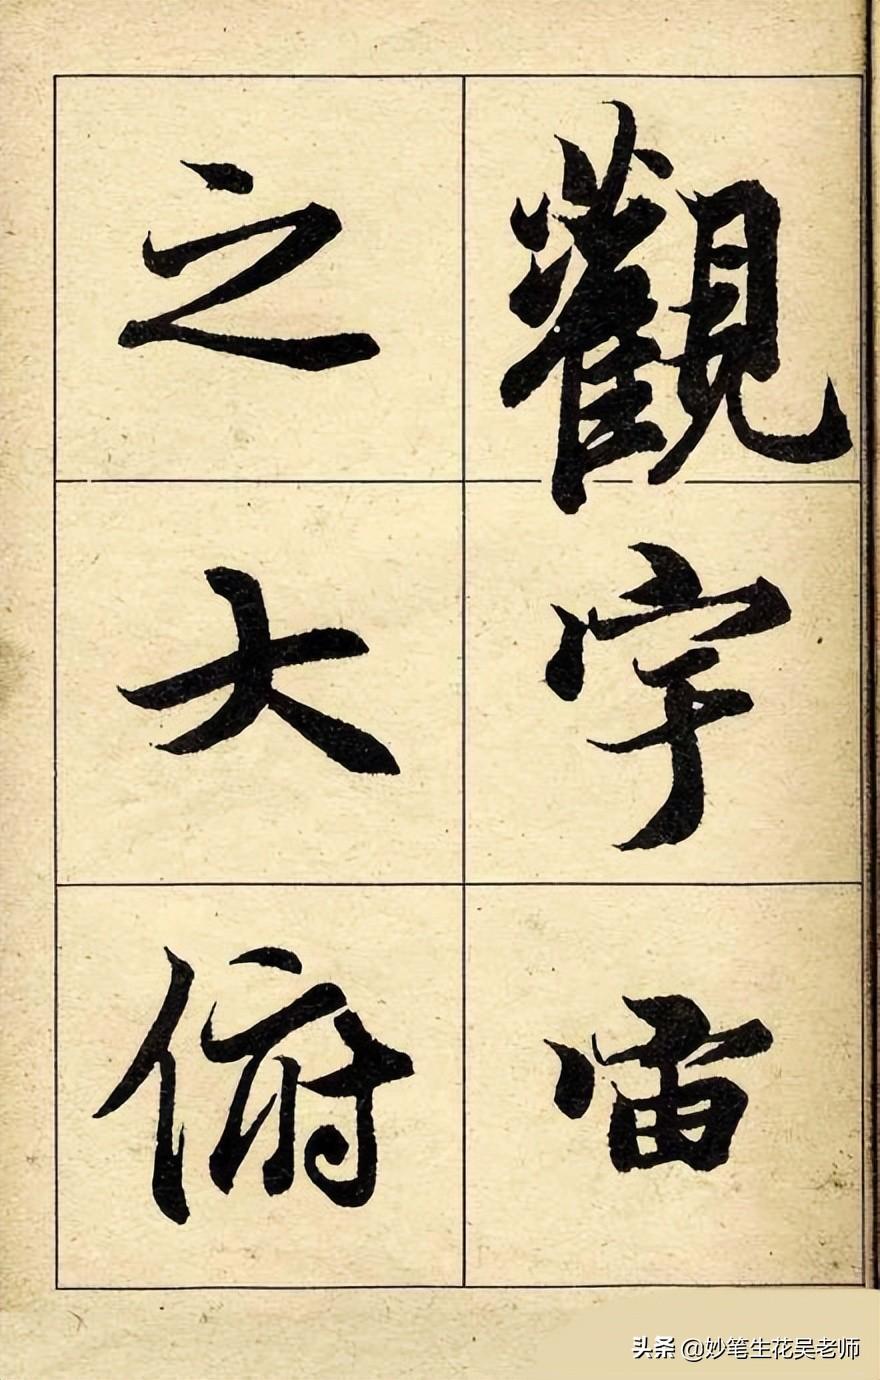 觀宇宙
之大俯
头条 @妙笔生花吴老师